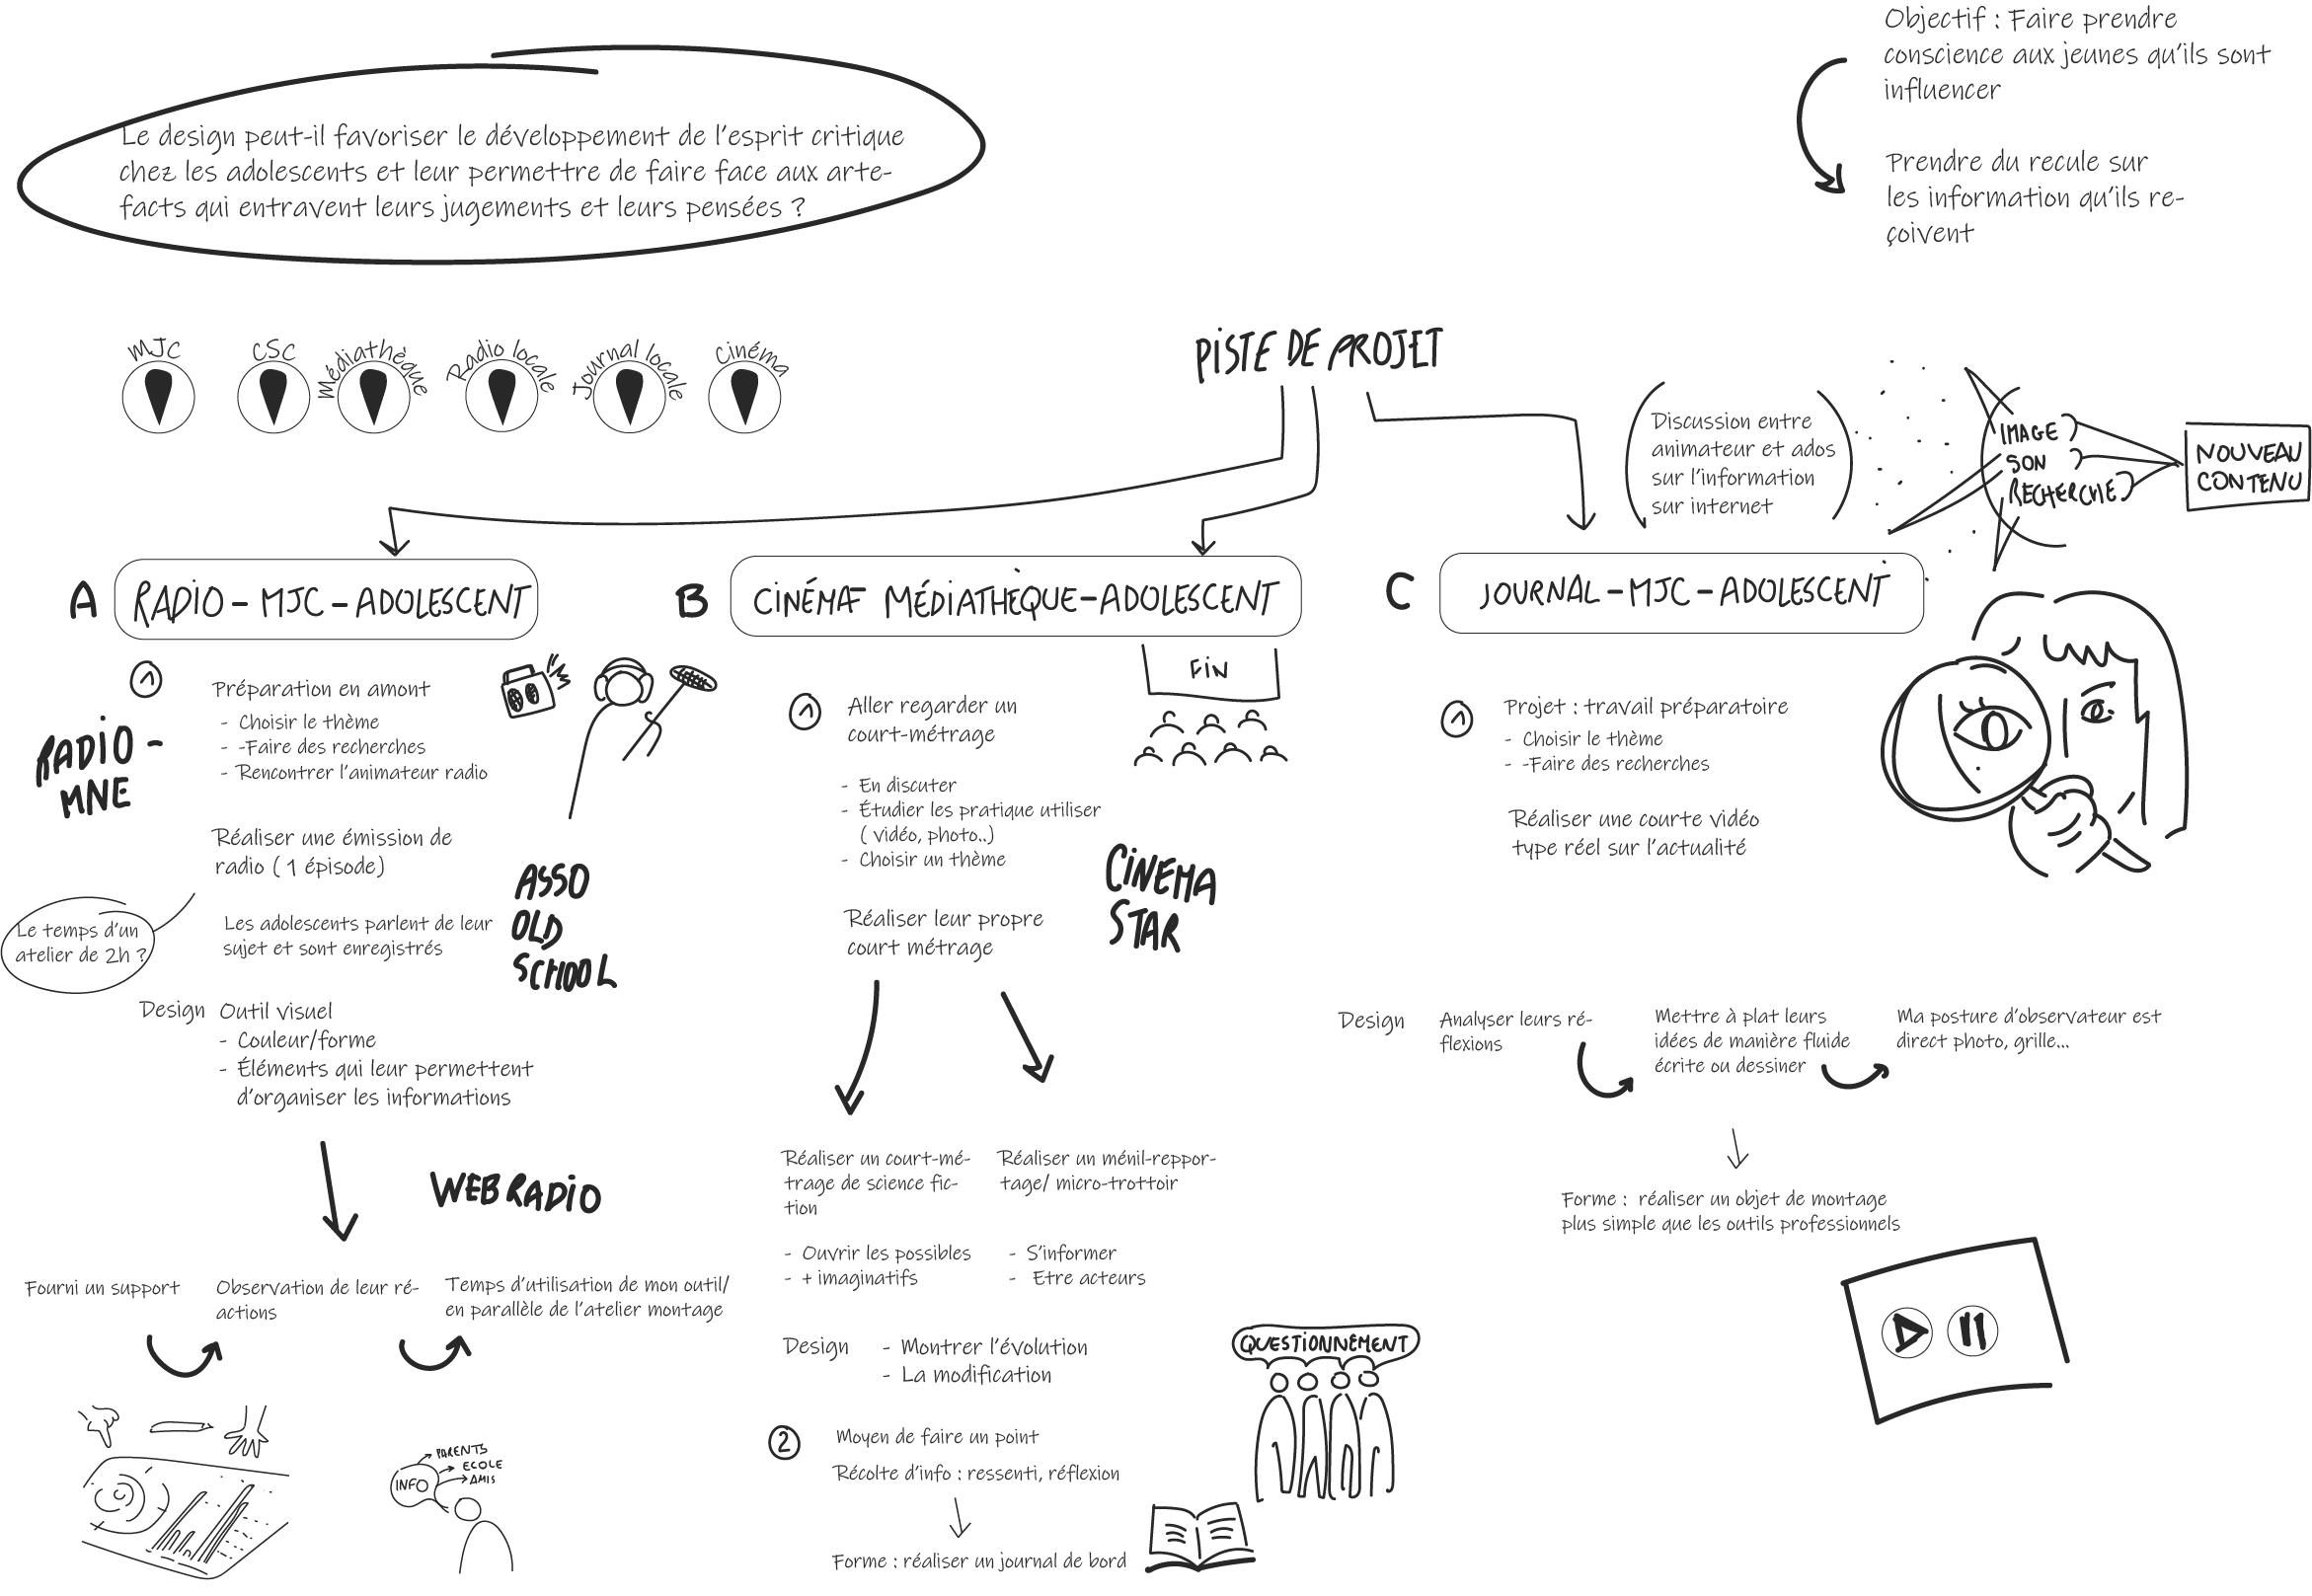 Le design peut-il favoriser le développement de l'esprit critique
chez les adolescents et leur permettre de faire face aux arte-
facts qui entravent leurs jugements et leurs pensées ?
Objectif : Faire prendre
conscience aux jeunes qu'ils sont
influencer
Prendre du recule sur
les information qu'ils re-
çoivent
MJC
CSC
Médiathèque
Radio locale
Journal locale
Cinéma
PISTE DE PROJET
Discussion entre
animateur et ados
sur l'information
sur internet
IMAGE
SON
RECHERCHE
NOUVEAU
CONTENU
A
RADIO - MJC - ADOLESCENT
1
Préparation en amont
- Choisir le thème
- -Faire des recherches
- Rencontrer l'animateur radio
RADIO -
MNE
Réaliser une émission de
radio ( 1 épisode)
Le temps d'un
atelier de 2h ?
Les adolescents parlent de leur
sujet et sont enregistrés
ASSO
OLD
SCHOOL
Design
Outil visuel
- Couleur/forme
- Éléments qui leur permettent
d'organiser les informations
WEB RADIO
Fourni un support
Observation de leur ré-
actions
Temps d'utilisation de mon outil/
en parallèle de l'atelier montage
INFO
PARENTS
ECOLE
AMIS
B
CINÉMA- MÉDIATHÈQUE-ADOLESCENT
FIN
1
Aller regarder un
court-métrage
- En discuter
- Étudier les pratique utiliser
( vidéo, photo..)
- Choisir un thème
CINEMA
STAR
Réaliser leur propre
court métrage
Réaliser un court-mé-
trage de science fic-
tion
- Ouvrir les possibles
- + imaginatifs
Réaliser un ménil-reppor-
tage/ micro-trottoir
- S'informer
- Etre acteurs
Design
- Montrer l'évolution
- La modification
QUESTIONNEMENT
2
Moyen de faire un point
Récolte d'info : ressenti, réflexion
Forme : réaliser un journal de bord
C
JOURNAL-MJC-ADOLESCENT
1
Projet : travail préparatoire
- Choisir le thème
- -Faire des recherches
Réaliser une courte vidéo
type réel sur l'actualité
Design
Analyser leurs ré-
flexions
Mettre à plat leurs
idées de manière fluide
écrite ou dessiner
Ma posture d'observateur est
direct photo, grille...
Forme : réaliser un objet de montage
plus simple que les outils professionnels